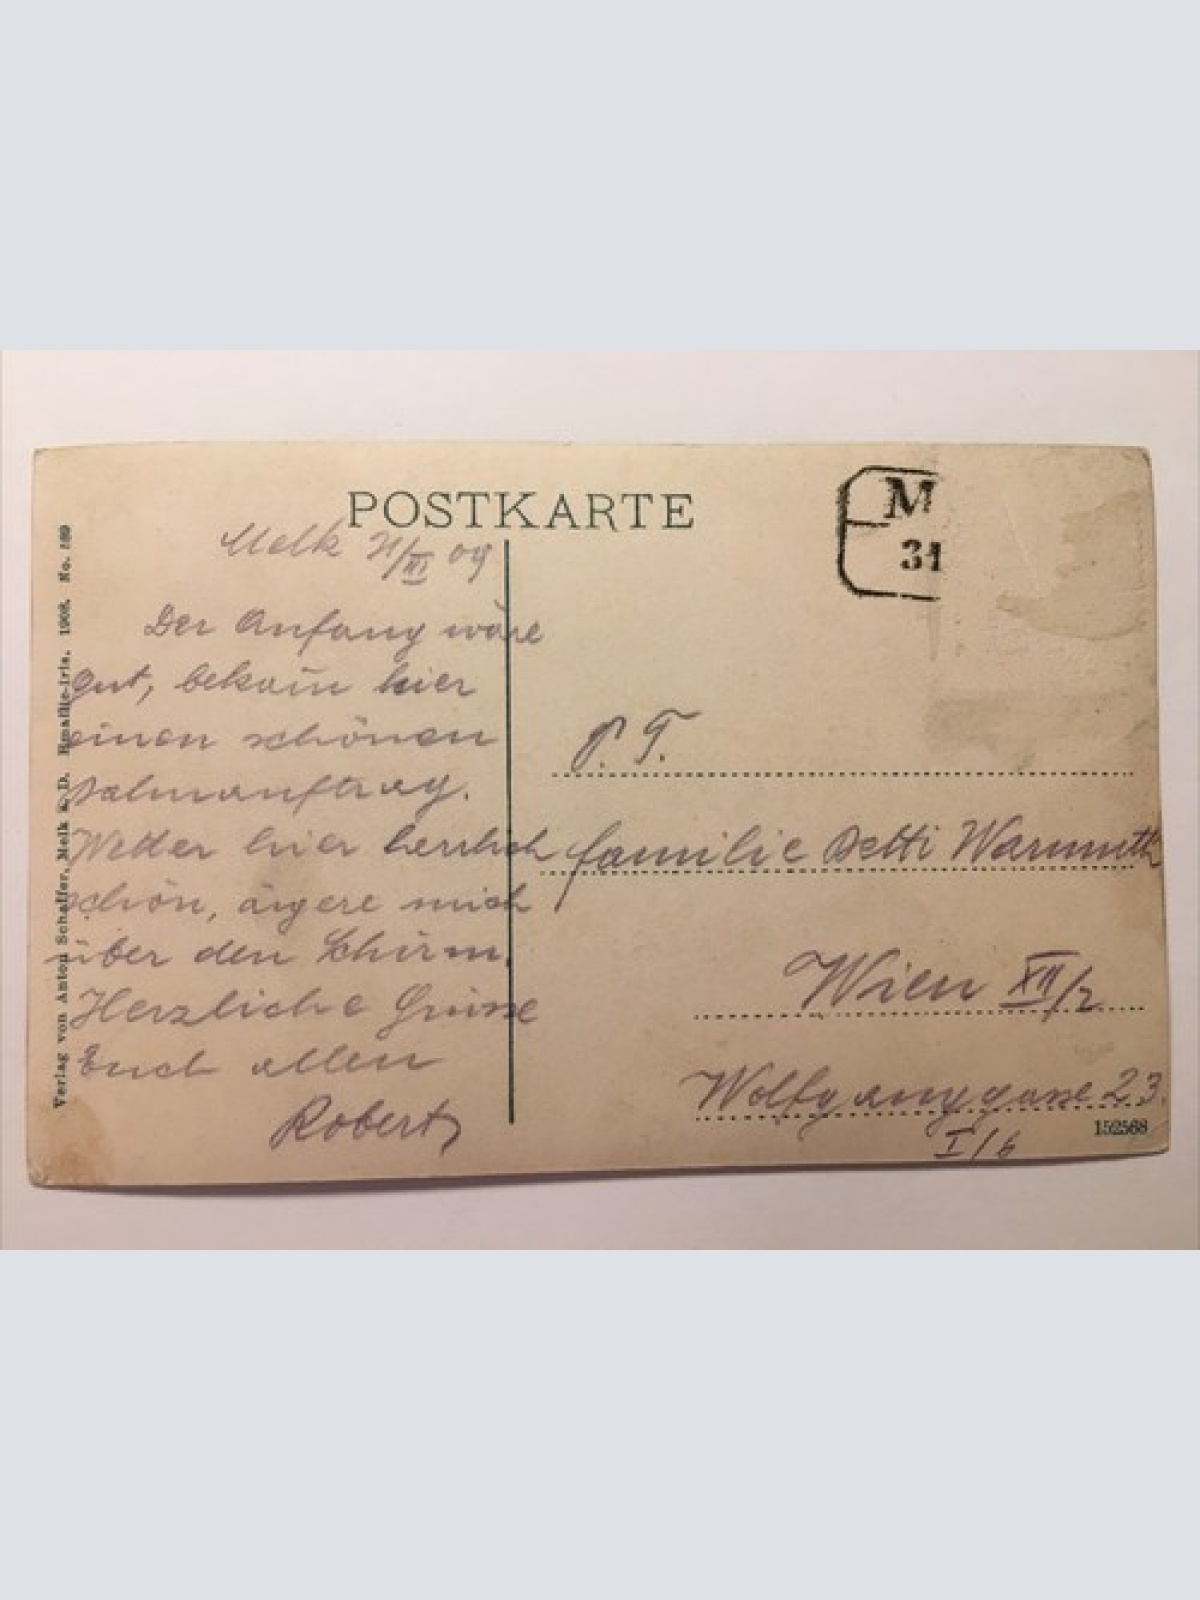 POSTKARTE
Melk 31/III 09
Der Anfang wäre
gut, bekam̄ hier
einen schönen
Wetter hier herrlich
schön, ärgere mich
über den Schirm.
Herzliche Grüsse
Euch allen
Robert
Verlag von Anton Schaffer, Melk a. D. 1908. No. 189
M
31
P. T.
familie Detti Warmuth
Wien XII/2
Wolfganggasse 23.
I/6
152568